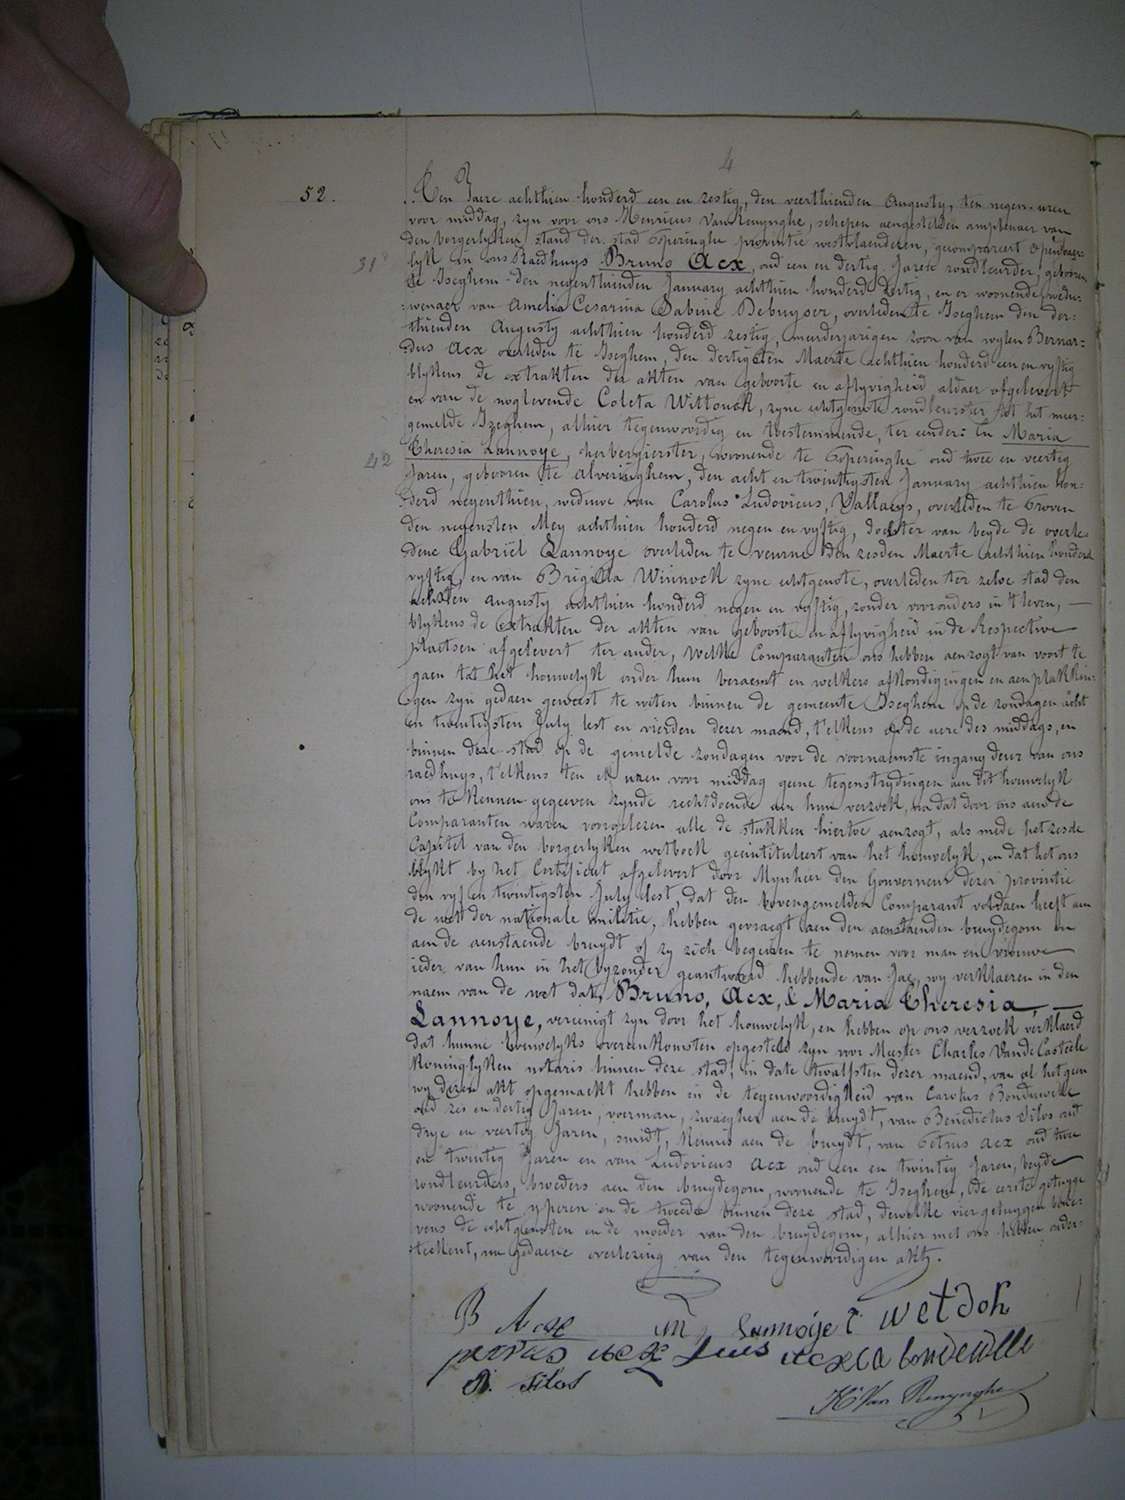 4
52.
Ten Jaere achthien honderd een en zestig, den veerthienden Augusty, ten negen uren
voor middag, zyn voor ons Henricus VanRenynghe, schepen aengestelden amptenaer van
den borgerlyken stand der stad Poperinghe provintie westvlaenderen, gecompareert openbaer-
lyk in ons Raedhuys Bruno Acx, oud een en dertig Jaren rondleurder, geboren
31
te Iseghem den negenthienden January achthien honderd dertig, en er woonende, wedu-
wenaer van Amelia Cesarina Sabine Debuyser, overleden te Iseghem den der-
thienden Augusty achthien honderd zestig, meerderjarigen zoon van wylen Bernar-
dus Acx overleden te Iseghem, den dertigsten Maerte achthien honderd een en vyftig
blykens de extrakten der akten van geboorte en aflyvigheid aldaer afgelevert
en van de noglevende Coleta Wittouck, zyne echtgenote rondleurster tot het meer-
gemelde Izeghem, alhier tegenwoordig en toestemmende, ter eender: En Maria
Theresia Lannoye, herbergierster, woonende te Poperinghe oud twee en veertig
42
Jaren, gebooren te Alveringhem, den acht en twintigsten January achthien hon-
derd negenthien, weduwe van Carolus Ludovicus, Vallaeys, overleden te Proven
den negensten Mey achthien honderd negen en vyftig, dochter van beyde de overle-
dene Gabriël Lannoye overleden te veurne den zesden Maerte achthien honderd
vyftig, en van Brigitta Winnock zyne echtgenote, overleden ter zelve stad den
achsten Augusty achthien honderd negen en vyftig, zonder voorouders in 't leven,
blykens de extrakten der akten van geboorte en aflyvigheid in de Respective
plaetsen afgelevert ter ander, Welke Comparanten ons hebben aenzogt van voort te
gaen tot het houwelyk onder hun beraemt en welkers afkondigingen en aenplakkin-
gen zyn gedaen geweest te weten binnen de gemeente Iseghem op de zondagen acht
en twintigsten July lest en vierden dezer maend, t'elkens op de uere des middags, en
binnen deze stad op de gemelde zondagen voor de voornaemste ingangdeur van ons
raedhuys, t'elkens ten elf uren voor middag geene tegenstrydingen aen dit houwelyk
ons te kennen gegeeven zynde rechtdoende aen hun verzoek, na dat door ons aen de
Comparanten waren voorgelezen alle de stukken hiertoe aenzogt, als mede het zesde
Capitel van den borgerlyken wetboek geintituleert van het houwelyk, en dat het ons
blykt by het Certificat afgelevert door Mynheer den Gouverneur dezer provintie
den vyf en twintigsten July lest, dat den bovengemelden Comparant voldaen heeft aen
de wet der nationale militie, hebben gevraegt aen den aenstaenden bruydegom en
aen de aenstaende bruydt of zy zich begeren te nemen voor man en vrouwe
ieder van hun in het byzonder geantwoord hebbende van Jae, wy verklaeren in den
naem van de wet dat, Bruno, Acx, & Maria Theresia
Lannoye, vereenigt zyn door het houwelyk, en hebben op ons verzoek verklaerd
dat hunne houwelyks overeenkomsten opgesteld zyn voor Meester Charles VandeCasteele
koninglyken notaris binnen deze stad, in date twalfsten dezer maend, van al hetgeen
wy dezen akt opgemaekt hebben in de tegenwoordigheid van Carolus Bonduwelle
oud zes en dertig Jaren, voerman, zwaegher aen de bruydt, van Benedictus Silos oud
drye en veertig Jaren, smidt, kennis aen de bruydt, van Petrus Acx oud twee
en twintig Jaren en van Ludovicus Acx oud een en twintig Jaren, beyde
rondleurders, broeders aen den bruydegom, woonende te Iseghem, de eerste getuyge
woonende te yperen en de tweede binnen deze stad, dewelke vier getuygen bene-
vens de echtgenoten en de moeder van den bruydegom, alhier met ons hebben onder-
teekent, na gedaene overlezing van den tegenwoordigen akt.
B Acx lannoije C wetdok
petrus acx Luis acx ca bonduelle
B. Silos
H Van Renynghe